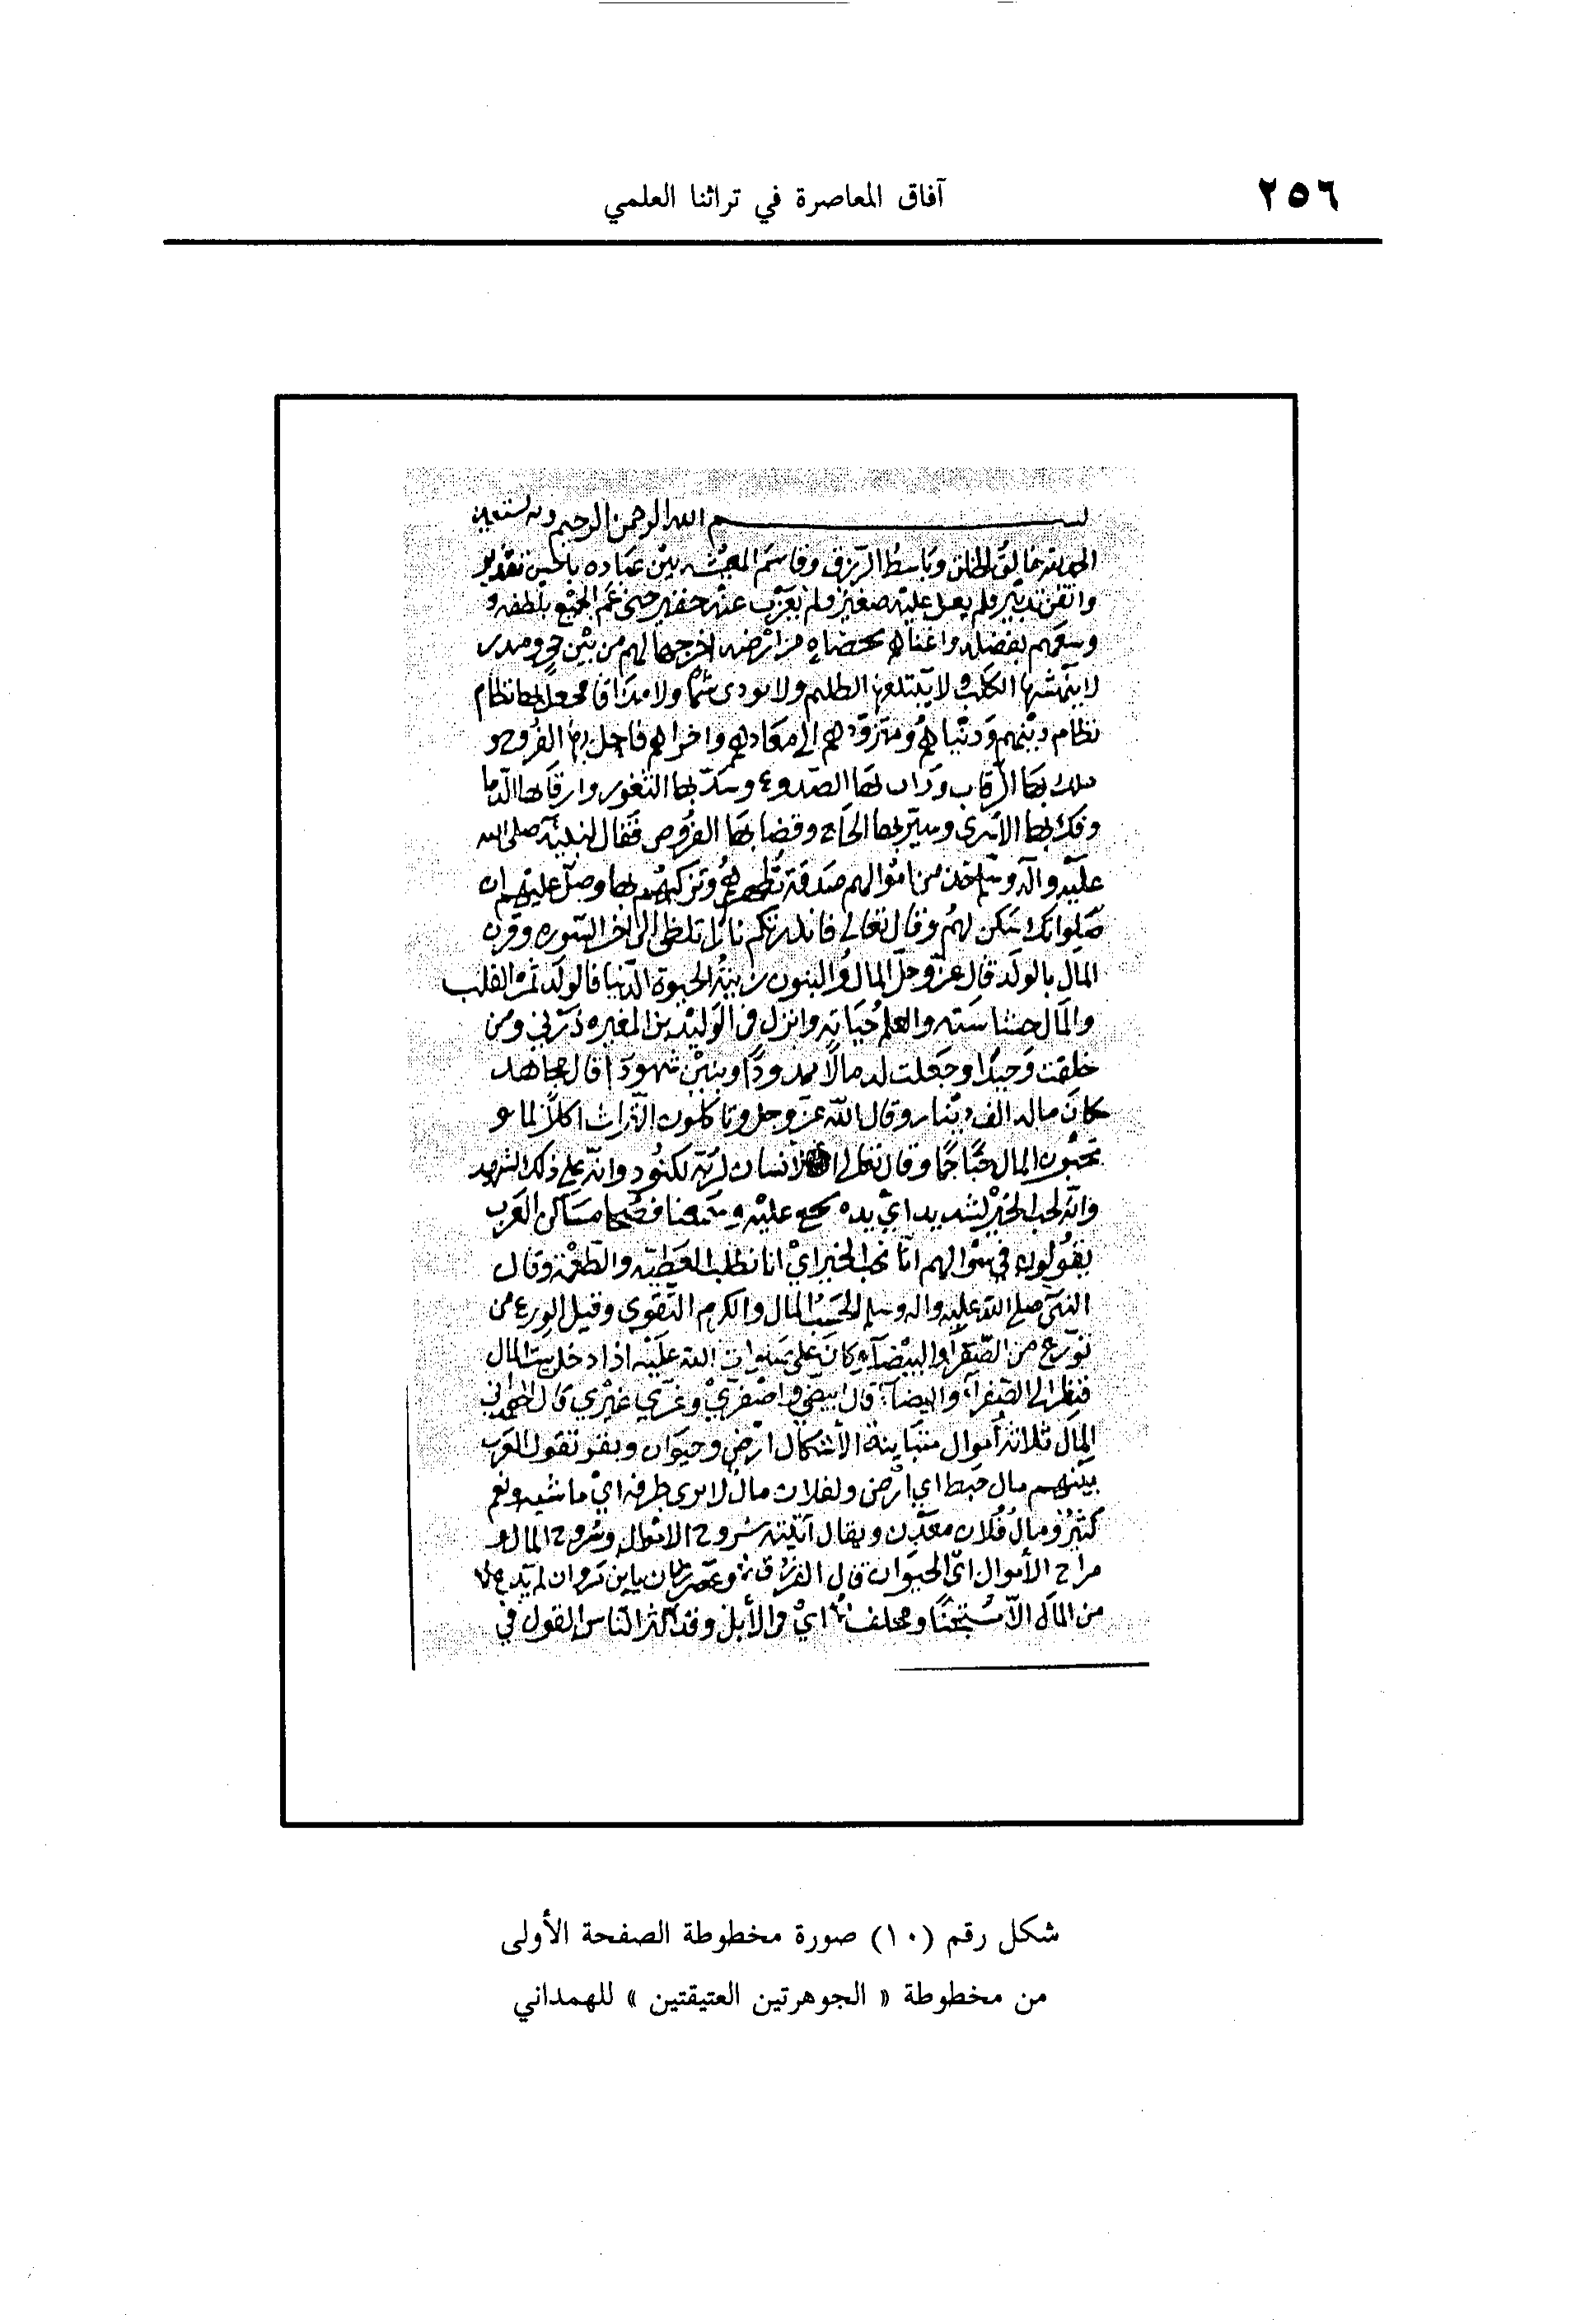 ٢٥٦
آفاق المعاصرة في تراثنا العلمي
بسم الله الرحمن الرحيم وبه نستعين
الحمد لله خالق الخلق وباسط الرزق وقاسم المعيشة بين عباده باحسن تقدير
واتقن تدبير فلم يعزب عنه حقير حتى عم الجميع بلطفه و
وسعهم بفضله واغناهم من ارضه اخرجها لهم من بين
لا ينهشها الكلب ولا يبتلعها الظليم ولا تودي شما ولا مذاقا فجعل بها نظام
نظام دينهم ودنياهم ومتزودهم الى معادهم واخراهم فاحل بها الفروج و
ملك بها الرقاب وراب بها الصدوع وسد بها الثغور وارقا بها الدما
وفك بها الاسرى وسير بها الحاج وقضا بها الفروض فقال لنبيه صلى الله
عليه وآله وسلم خذ من اموالهم صدقة تطهرهم وتزكيهم بها وصل عليهم ان
صلواتك سكن لهم وقال تعالى فانذرتكم نارا تلظى الى اخر السوره وقرن
المال بالولد قال عز وجل المال والبنون زينة الحيوة الدنيا فالولد ثمرة القلب
والمال وانزل في الوليد بن المغيره ذرني ومن
خلقت وحيدا وجعلت له مالا ممدودا وبنين شهودا قال مجاهد
كان ماله الف دينار وقال الله عز وجل وتاكلون التراث اكلا لما و
تحبون المال حبا جما وقال تعالى ان الانسان لربه لكنود وانه على ذلك لشهيد
وانه لحب الخير لشديد اي مساكن العرب
يقولون في سؤالهم انا نحب الخير اي انا نطلب العطيه والطعمة وقال
النبي صلى الله عليه واله وسلم الحسب المال والكرم التقوى وقيل الورع من
تورع من الصفراء والبيضاء وكان علي صلوات الله عليه اذا دخل بيت المال
فنظر الى الصفراء والبيضاء قال ابيضي واصفري وغري غيري قال الهمداني
المال ثلاثة اموال متباينة الأشكال ارض وحيوان وتقول العرب
بينهم مال اي ارض ولفلان مال لا يرى طرفه اي ماشيه ونعم
كثير ومال فلان معدن ويقال اتيته سروح الاموال وسروح المال و
مراح الأموال اي الحيوان قال الفرزدق وعض زمان يابن مروان لم يدع
من المال الا مسحتا ومجلف اي من الأبل وقد اكثر الناس القول في
شكل رقم (١٠) صورة مخطوطة الصفحة الأولى
من مخطوطة « الجوهرتين العتيقتين » للهمداني